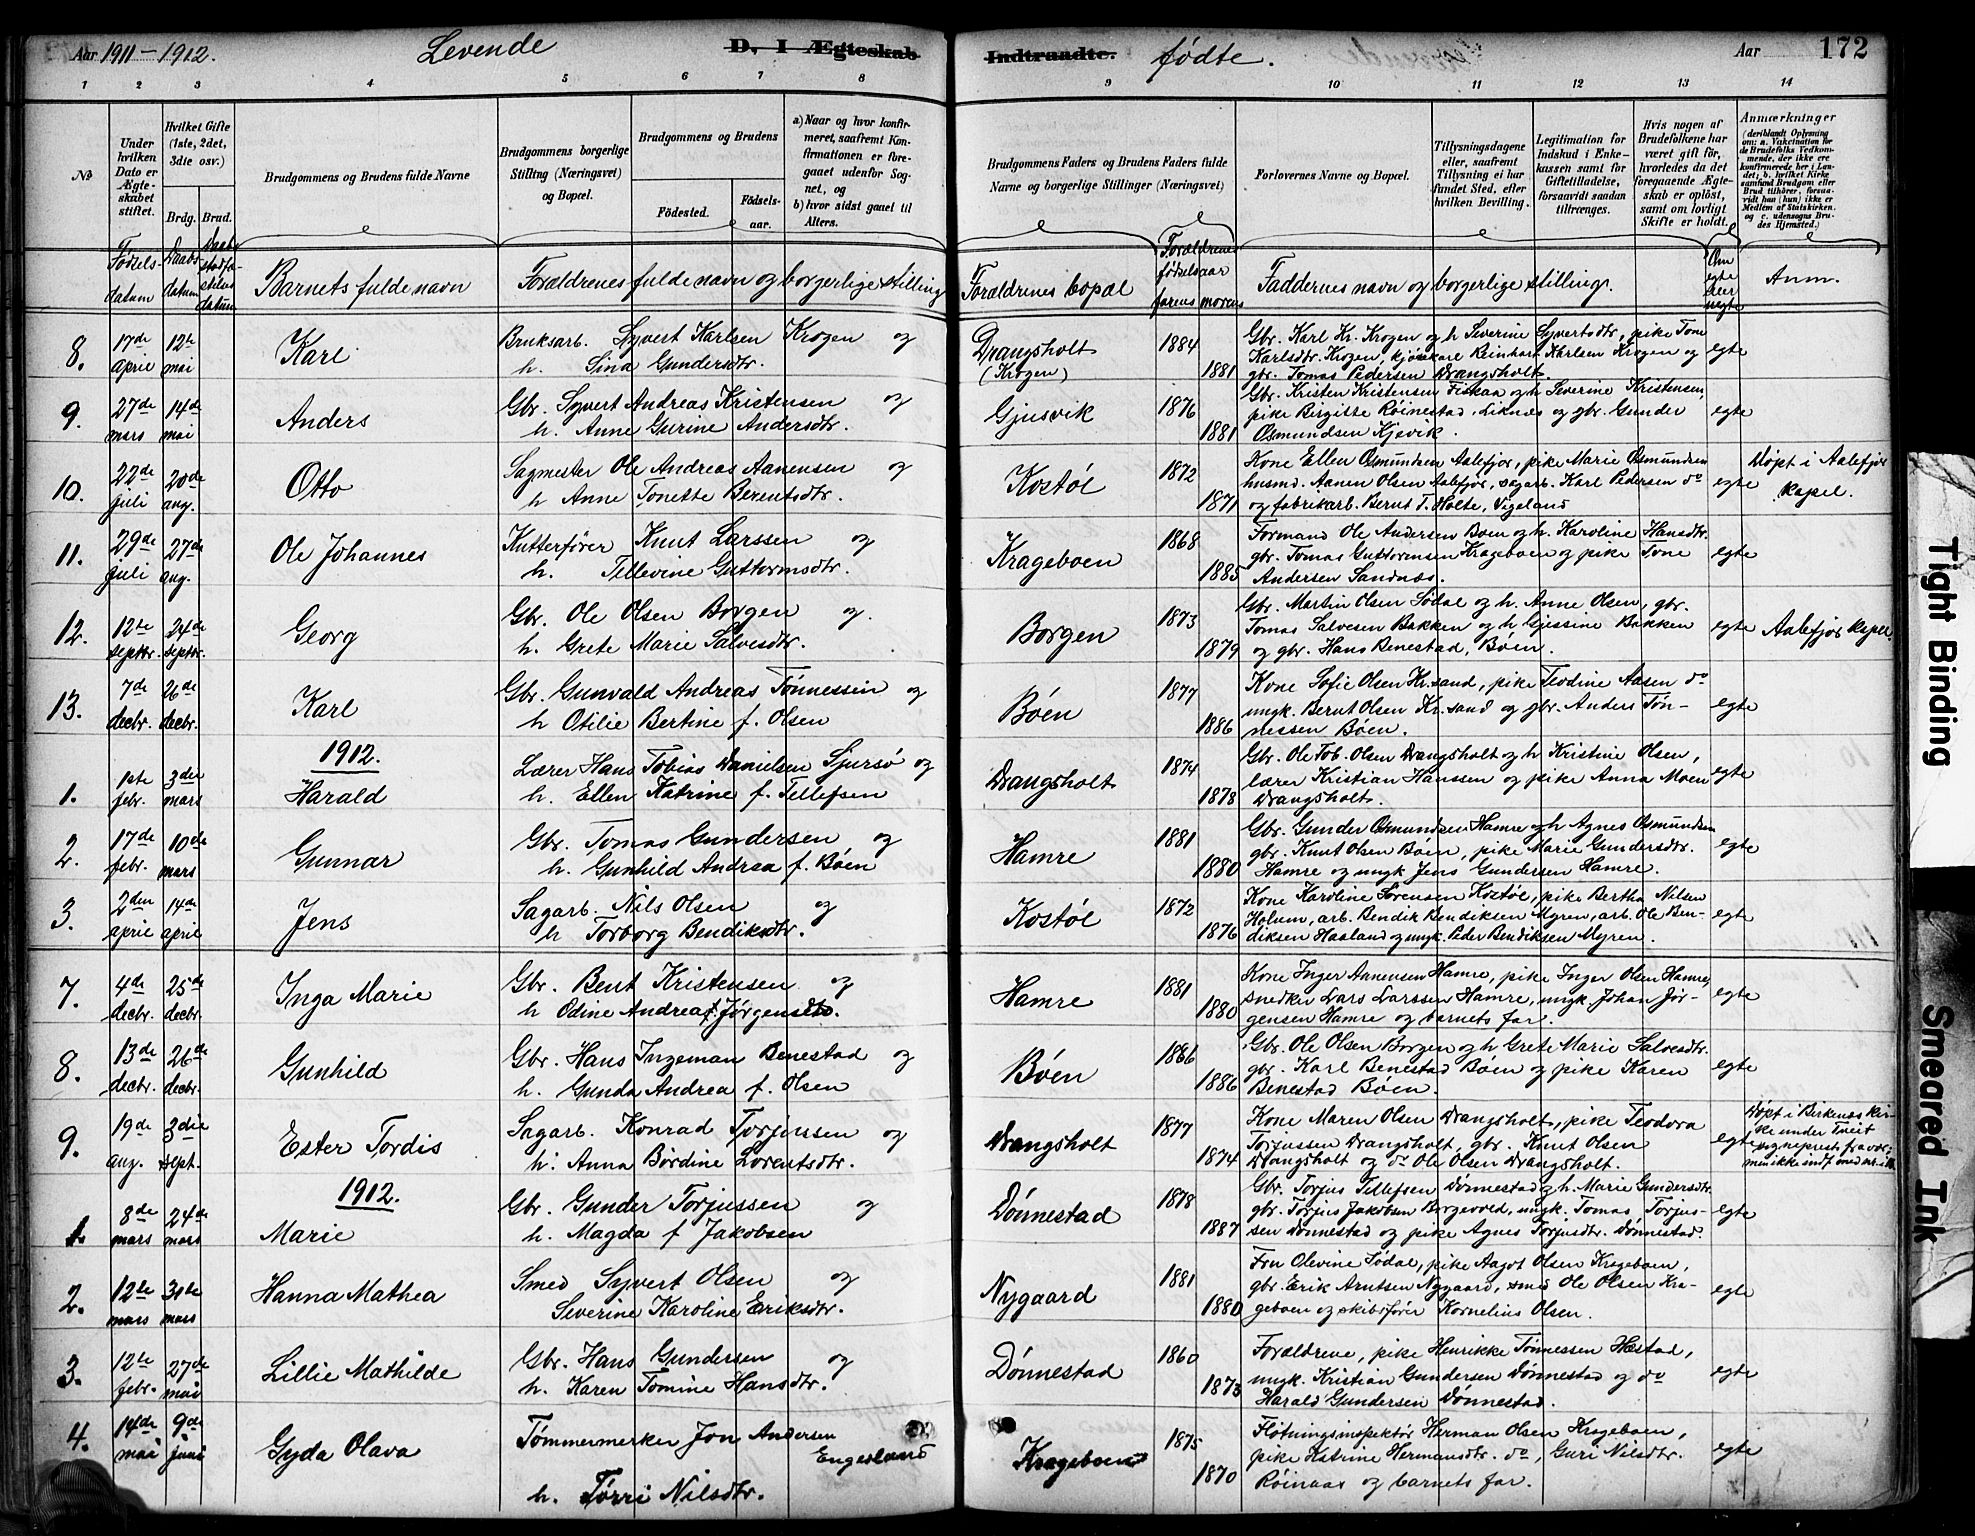 Aar 1911 - 1912. Levende D. I Ægteskab Indtraadte. fødte. Aar 172
1 2 3 4 5 6 7 8 9 10 11 12 13 14
№
Under hvilken Dato er Ægteskabet stiftet.
Hvilket Gifte (1ste, 2det, 3die osv.)
Brdg. Brud.
Brudgommens og Brudens fulde Navne
Brudgommens borgerlige Stilling (Næringsvei) og Bopæl.
Brudgommens og Brudens
Fødested. Fødselsaar.
a) Naar og hvor konfirmeret, saafremt Konfirmationen er foregaaet udenfor Sognet, og
b) hvor sidst gaaet til Alters.
Brudgommens Faders og Brudens Faders fulde Navne og borgerlige Stillinger (Næringsvei)
Forlovernes Navne og Bopæl.
Tillysningsdagene eller, saafremt Tillysning ei har fundet Sted, efter hvilken Bevilling.
Legitimation for Indskud i Enkekassen samt for Giftetilladelse, forsaavidt sandan tiltrænges.
Hvis nogen af Brudefolkene har været gift før, hvorledes da det foregaaende Ægteskab er opløst, samt om lovligt Skifte er holdt.
Anmærkninger
(deriblandt Oplysning om: a. Vakcination for de Brudefolks Vedkommende, der ikke ere konfirmerede her i Landet; b. hvilket Kirkesamfund Brudgom eller Brud tilhører, forsaavidt han (hun) ikke er Medlem af Statskirken. og c. udensogns Brudes Hjemsted.)
Fødselsdatum Daabsdatum Barnets fulde navn Forældrenes fulde navn og borgerlige stilling Forældrenes bopæl Forældrenes fødselsaar farens morens Faddernes navn og borgerlige stilling. Om egte eller uegte Anm.
8. 17de april 12te mai Karl Bruksarb. Syvert Karlsen Krogen og
h. Sina Gundersdtr. Drangsholt (Krogen) 1884 1881
Gbr. Karl Kr. Krogen og h Severine Syvertsdtr, pike Tone
Karlsdtr. Krogen, Reinhart Karlsen Krogen og
gbr. Tomas Pedersen Drangsholt. egte
9. 27de mars 14de mai Anders Gbr. Syvert Andreas Kristensen og
h. Anne Gurine Andersdtr. Gjusvik 1876 1881
Gbr. Kristen Kristensen Fiskaa og h Severine Kristensen,
pike Birgitte Røinestad, Liknes og gbr. Gunder
Osmundsen Kjevik. egte
10. 22de juli 20de aug. Otto Sagmester Ole Andreas Aanensen og
h Anne Tonette Berentsdtr. Kostøl 1872 1871
Kone Ellen Osmundsen Aalefjor, pike Marie Osmundsen
husmd. Aanen Olsen Aalefjor, sagarb. Karl Pedersen do
og fabrikarb. Bernt T. Holte, Vigeland egte Døpt i Aalefjor kapel.
11. 29de juli 27de aug. Ole Johannes Kutterfører Knut Larssen og
h. Tellevine Guttormsdtr. Krageboen 1868 1885
Formand Ole Andersen Boen og h. Karoline Hansdtr.
gbr. Tomas Guttormsen Krageboen og pike Tone
Andersen Sandnæs. egte
12. 12te septbr. 24de septbr. Georg Gbr. Ole Olsen Borgen og.
h. Grete Marie Salvesdtr. Borgen 1873 1879
Gbr. Martin Olsen Sødal og h. Anne Olsen, gbr.
Tomas Salvesen Bakken og h Gjessine Bakken
og gbr. Hans Benestad, Bøen. egte Aalefjor kapel.
13. 7de decbr. 26de decbr. Karl Gbr. Gunvald Andreas Tønnessen og
h Otilie Bertine f. Olsen Bøen 1877 1886
Kone Sofie Olsen Kr.sand, pike Teodine Aasen do
ungk. Bernt Olsen Kr.sand og gbr. Anders Tøn-
nessen Bøen. egte
1912.
1. 1ste febr. 3die mars Harald Lærer Hans Tobias Danielsen Sjursø og
h. Ellen Katrine f. Tellefsen Drangsholt 1874 1878
Gbr. Ole Tob. Olsen Drangsholt og h Kristine Olsen,
lærer Kristian Hanssen og pike Anna Moen
Drangsholt. egte
2. 17de febr. 10de mars Gunnar Gbr. Tomas Gundersen og
h. Gunhild Andrea f. Bøen Hamre 1881 1880
Gbr. Gunder Osmundsen Hamre og h Agnes Osmundsen
gbr. Knut Olsen Bøen, pike Marie Gundersdtr.
Hamre og ungk Jens Gundersen Hamre. egte
3. 2den april 14de april Jens Sagarb. Nils Olsen og
h Torborg Bendiksdtr. Kostøl 1872 1876
Kone Karoline Sørensen Kostøl, pike Bertha Nilsen
Holum, arb. Bendik Bendiksen Myren, arb. Ole Ben-
diksen Haaland og ungk. Peder Bendiksen Myren. egte
7. 4de decbr. 25de decbr. Inga Marie Gbr. Bent Kristensen og
h Odine Andrea f. Jørgensdtr. Hamre 1881 1880
Kone Inger Aanensen Hamre, pike Inger Olsen Hamre,
snedker Lars Larssen Hamre, ungk. Johan Jør-
gensen Hamre og barnets far. egte
8. 13de decbr. 26de decbr. Gunhild Gbr. Hans Ingeman Benestad og
h. Gunda Andrea f. Olsen Bøen 1886 1886
Gbr. Ole Olsen Borgen og h Grete Marie Salvesdtr.
gbr. Karl Benestad Bøen og pike Karen
Benestad Bøen. egte
9. 19de aug. 3die sept. Ester Tordis Sagarb. Konrad Torjussen og
h. Anna Bordine Lorentsdtr. Drangsholt 1877 1874
Kone Maren Olsen Drangsholt, pike Teodora
Torjussen Drangsholt, gbr. Knut Olsen
Drangsholt og do Ole Olsen Drangsholt. egte Døpt i Birkenes kir-
ke under Tveit
sogneprest
men ikke indf
1912.
1. 8de mars 24de mars Marie Gbr. Gunder Torjussen og
h. Magda f Jakobsen Dønnestad 1878 1887
Gbr. Torjus Tellefsen Dønnestad og h. Marie Gundersdtr.
gbr. Torjus Jakobsen Borgevold, ungk. Tomas Torjus-
sen Dønnestad og pike Agnes Torjusdtr. Dønnestad. egte
2. 12te mars 31te mars Hanna Mathea Smed Syvert Olsen og
Severine Karoline Eriksdtr. Nygaard 1881 1880
Fru Olevine Sødal, pike Aagot Olsen Krageboen,
gbr. Erik Arntsen Nygaard, smed Ole Olsen Kra-
geboen og skibsfører Kornelius Olsen. egte
3. 12te febr. 27de mai Lillie Mathilde Gbr. Hans Gundersen og
h. Karen Tomine Hansdtr. Dønnestad 1860 1873
Forældrene, pike Henrikke Tønnessen Hæstad,
ungk. Kristian Gundersen Dønnestad og do
Harald Gundersen Dønnestad. egte
4. 14de mai 9de juni Gyda Olava Tømmermerker Jon Andersen Engesland
h. Tørri Nilsdtr. Krageboen 1875 1870
Fløtningsinspektør Herman Olsen Krageboen,
pike Katrine Hermansdtr. do, Guri Nilsdtr.
Røinaas og barnets far. egte
Tight Binding
Smeared Ink